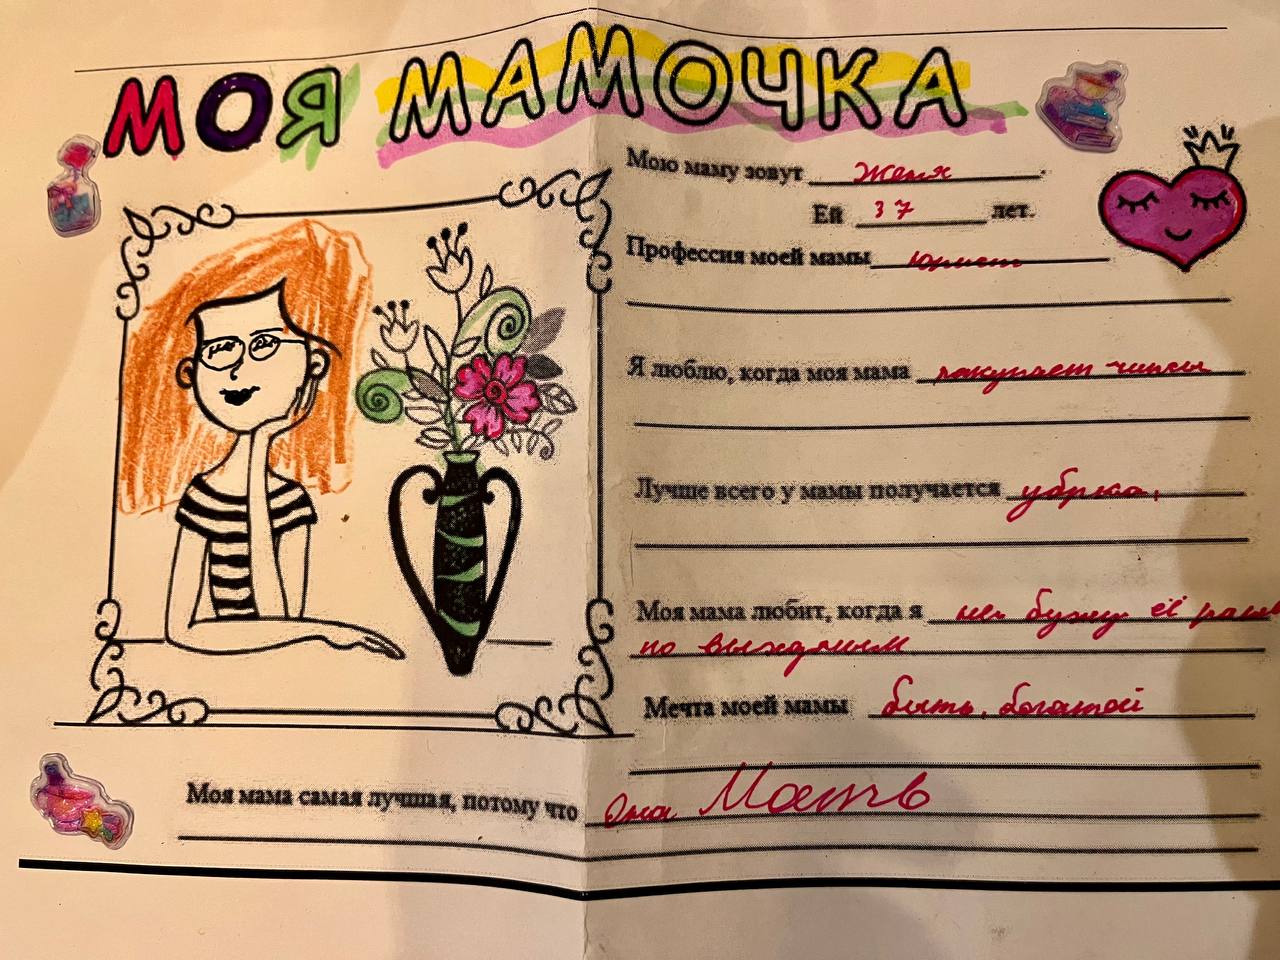 МОЯ МАМОЧКА
Мою маму зовут Женя
Ей 37 лет.
Профессия моей мамы Юрист
Я люблю, когда моя мама покупает чипсы
Лучше всего у мамы получается
Моя мама любит, когда я не бужу её рано
по выходным
Мечта моей мамы быть, богатой
Моя мама самая лучшая, потому что Она Мать